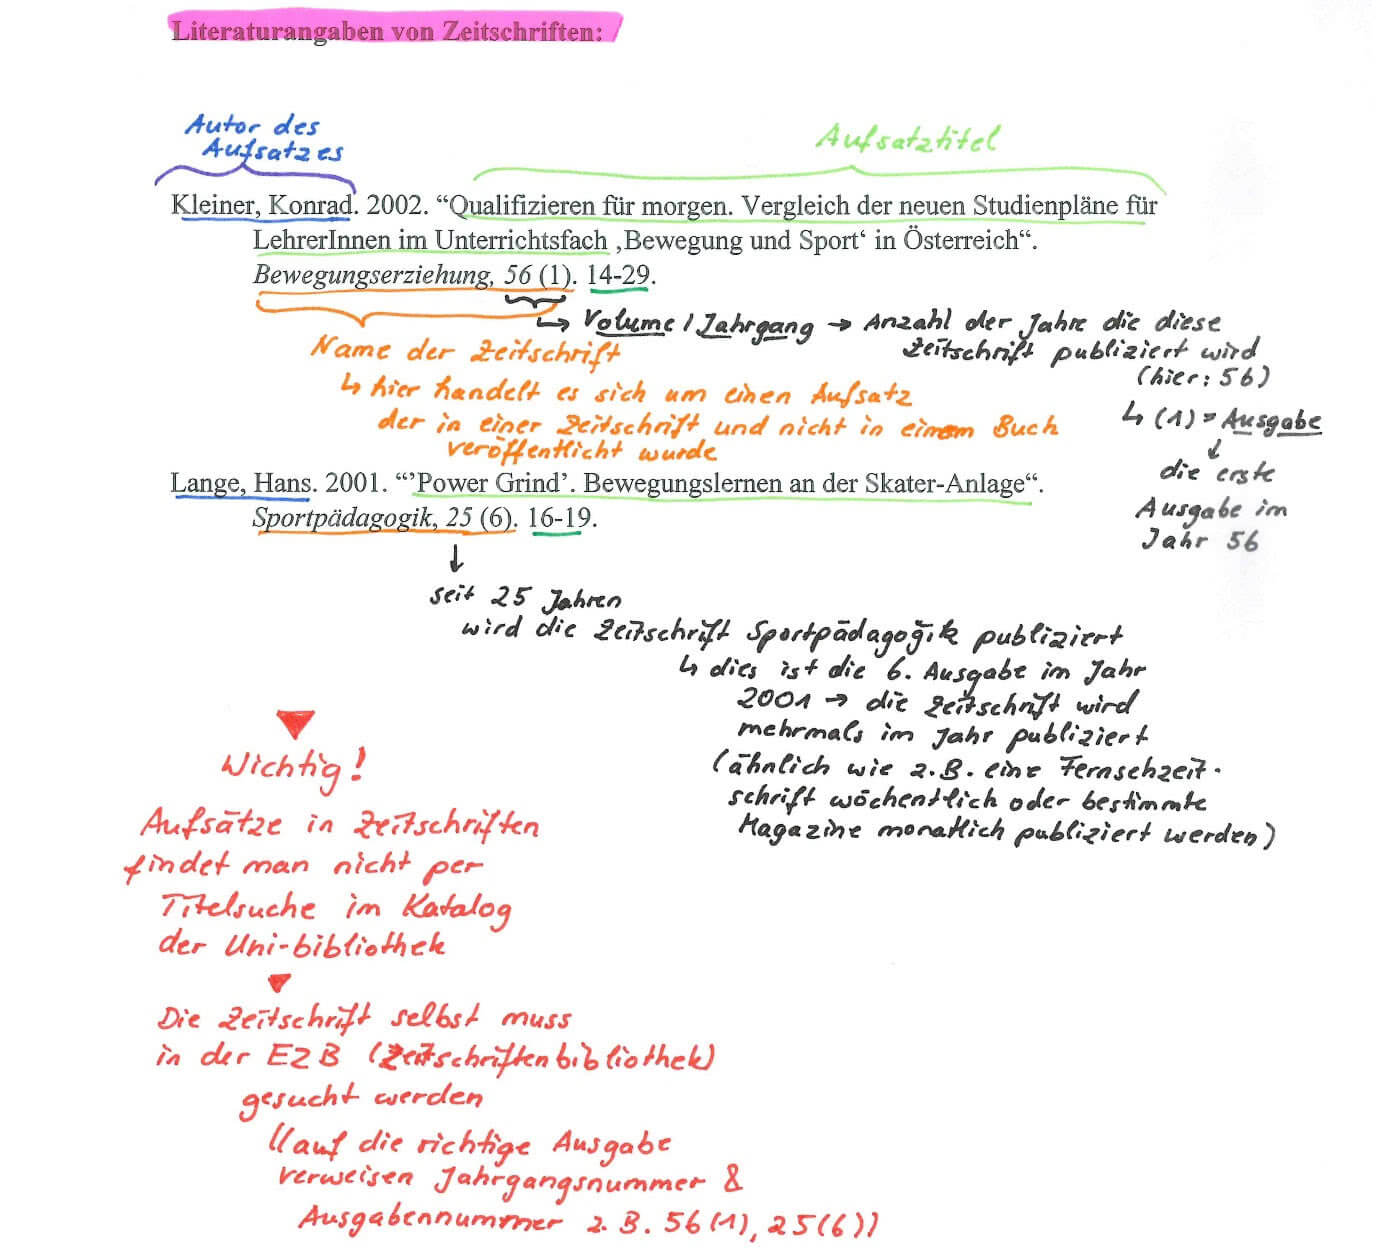 Literaturangaben von Zeitschriften:
Autor des
Aufsatzes
Aufsatztitel
Kleiner, Konrad. 2002. “Qualifizieren für morgen. Vergleich der neuen Studienpläne für
LehrerInnen im Unterrichtsfach ‚Bewegung und Sport‘ in Österreich“.
Bewegungserziehung, 56 (1). 14-29.
↳ Volume / Jahrgang → Anzahl der Jahre die diese
Zeitschrift publiziert wird
(hier: 56)
Name der Zeitschrift
↳ hier handelt es sich um einen Aufsatz
der in einer Zeitschrift und nicht in einem Buch
veröffentlicht wurde
↳ (1) = Ausgabe
↓
die erste
Ausgabe im
Jahr 56
Lange, Hans. 2001. “’Power Grind’. Bewegungslernen an der Skater-Anlage“.
Sportpädagogik, 25 (6). 16-19.
↓
seit 25 Jahren
wird die Zeitschrift Sportpädagogik publiziert
↳ dies ist die 6. Ausgabe im Jahr
2001 → die Zeitschrift wird
mehrmals im Jahr publiziert
(ähnlich wie z.B. eine Fernsehzeit-
schrift wöchentlich oder bestimmte
Magazine monatlich publiziert werden)
Wichtig!
Aufsätze in Zeitschriften
findet man nicht per
Titelsuche im Katalog
der Uni-bibliothek
Die Zeitschrift selbst muss
in der EZB (Zeitschriftenbibliothek)
gesucht werden
(( auf die richtige Ausgabe
verweisen Jahrgangsnummer &
Ausgabennummer z.B. 56(1), 25(6))